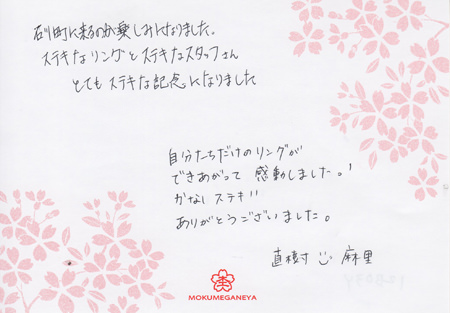 石川町に来るのが楽しみになりました。
ステキなリングとステキなスタッフさん
とても ステキな記念になりました
自分たちだけのリングが
できあがって 感動しました。!
かなり ステキ!!
ありがとうございました。
直樹 麻里
MOKUMEGANEYA